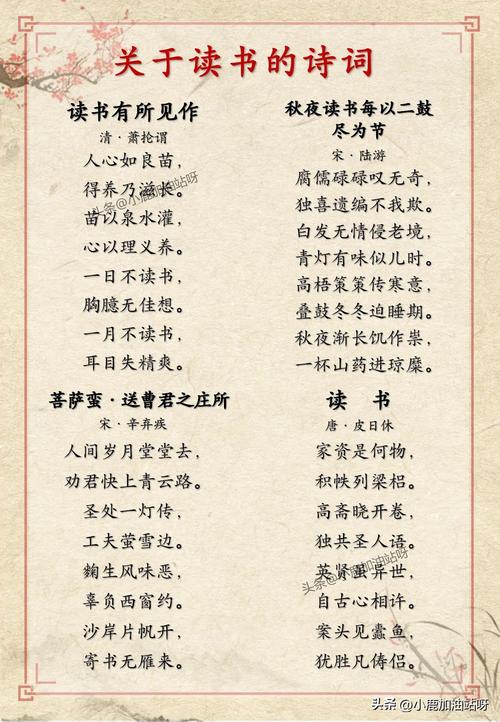 关于读书的诗词
读书有所见作
清·萧抡谓
人心如良苗，
得养乃滋长。
苗以泉水灌，
心以理义养。
一日不读书，
胸臆无佳想。
一月不读书，
耳目失精爽。
头条@小鹿加油站呀
秋夜读书每以二鼓
尽为节
宋·陆游
腐儒碌碌叹无奇，
独喜遗编不我欺。
白发无情侵老境，
青灯有味似儿时。
高梧策策传寒意，
叠鼓冬冬迫睡期。
秋夜渐长饥作祟，
一杯山药进琼糜。
菩萨蛮·送曹君之庄所
宋·辛弃疾
人间岁月堂堂去，
劝君快上青云路。
圣处一灯传，
工夫萤雪边。
麴生风味恶，
辜负西窗约。
沙岸片帆开，
寄书无雁来。
读 书
唐·皮日休
家资是何物，
积帙列梁梠。
高斋晓开卷，
独共圣人语。
英贤虽异世，
自古心相许。
案头见蠹鱼，
犹胜凡俦侣。
头条@小鹿加油站呀
头条@小鹿加油站呀